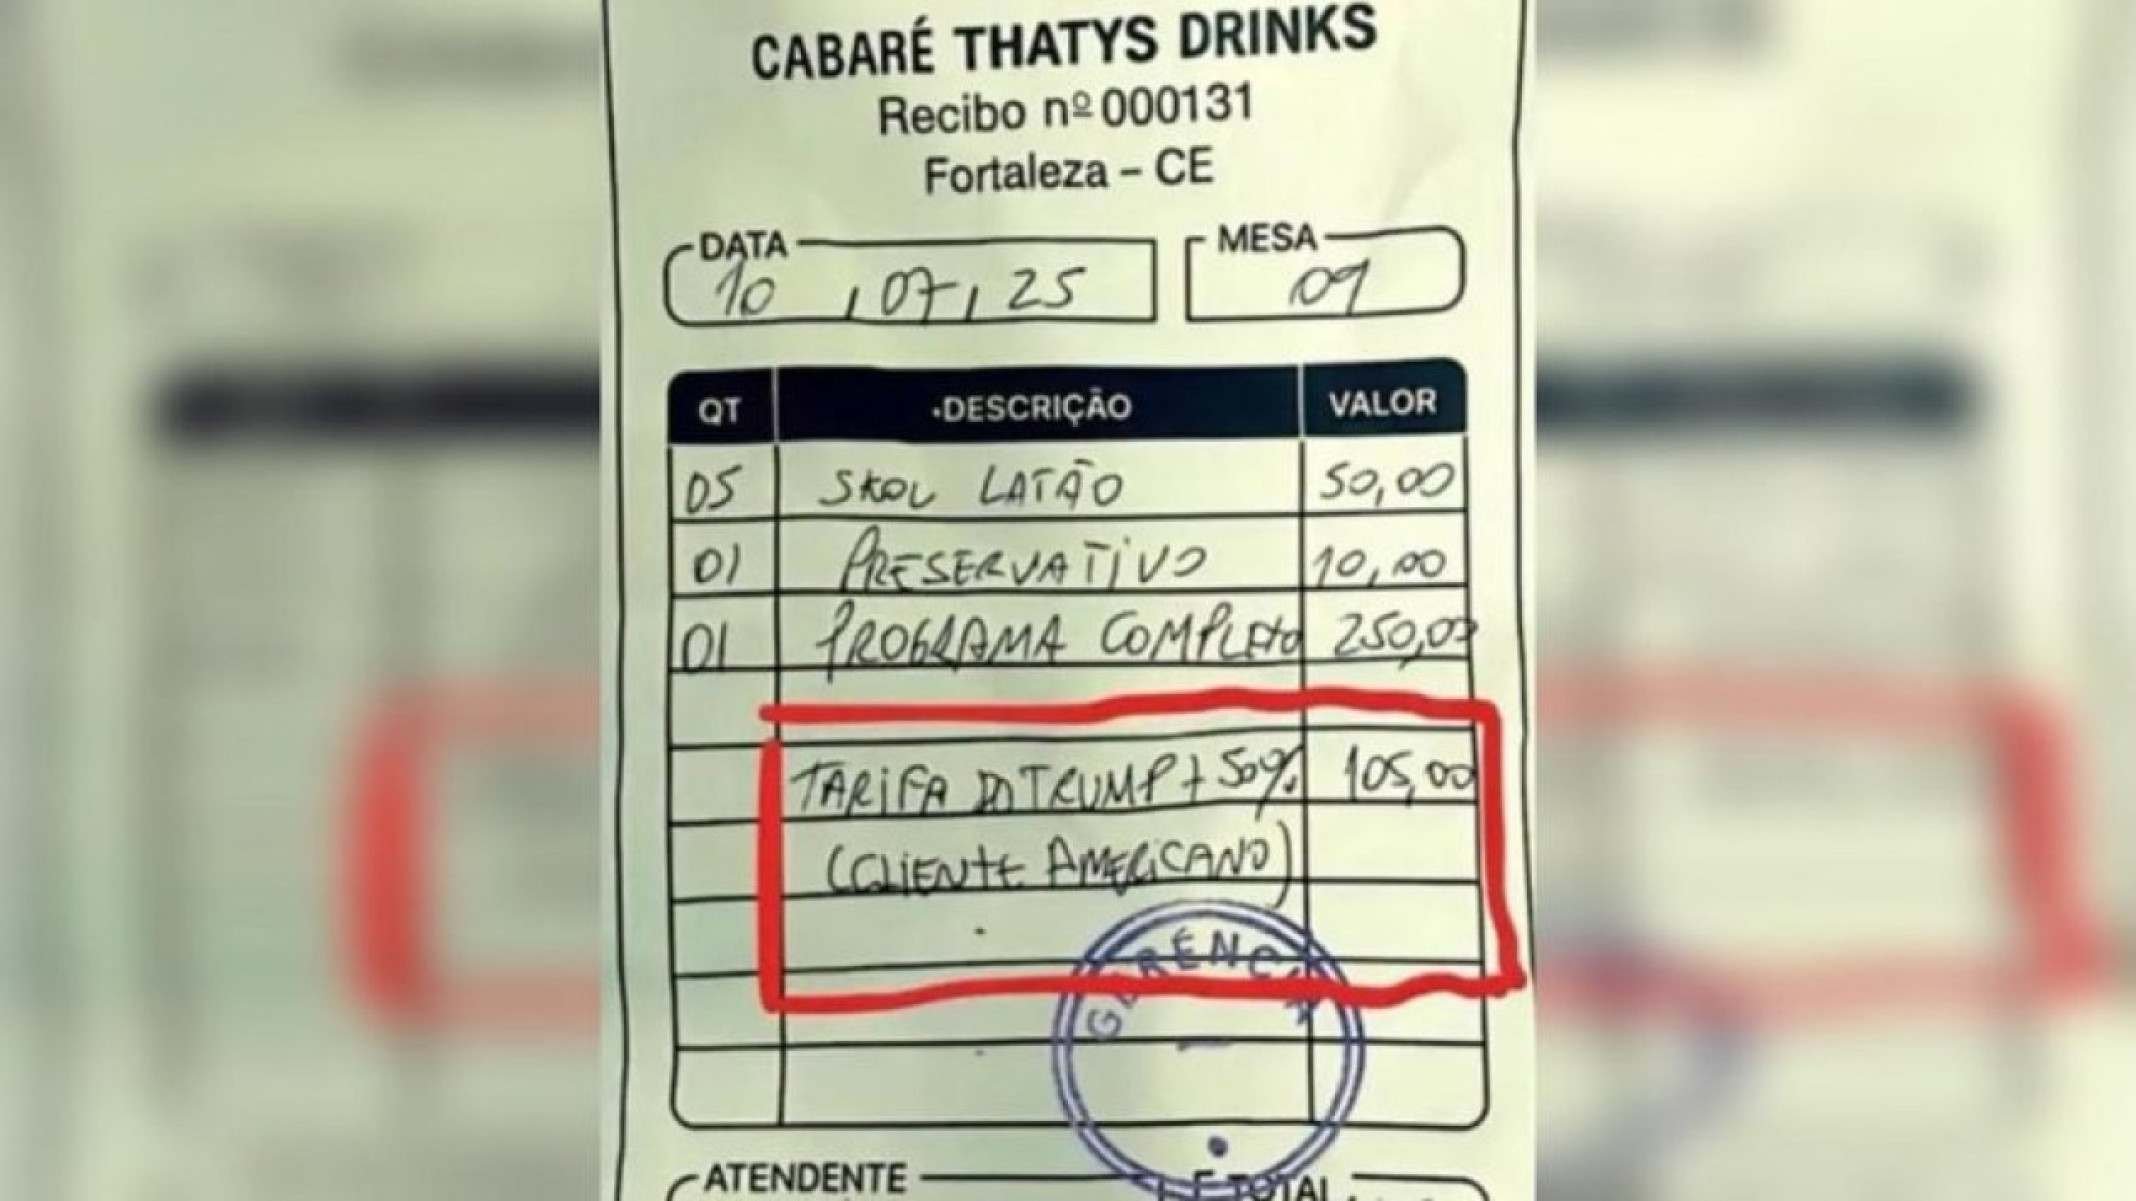 CABARÉ THATYS DRINKS
Recibo nº 000131
Fortaleza – CE
DATA 10 / 07 / 25
MESA 09
QT DESCRIÇÃO VALOR
05 SKOL LATÃO 50,00
01 PRESERVATIVO 10,00
01 PROGRAMA COMPLETO 250,00
TARIFA DO TRUMP + 50% 105,00
(CLIENTE AMERICANO)
GERÊNCIA
ATENDENTE
TOTAL